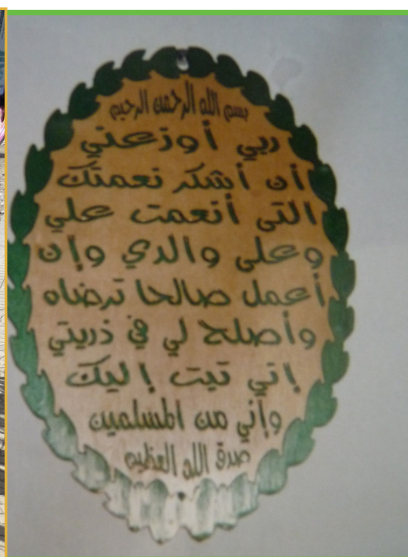 بسم الله الرحمن الرحيم
ربي أوزعني
أن أشكر نعمتك
التي أنعمت علي
وعلى والدي وإن
أعمل صالحا ترضاه
وأصلح لي في ذريتي
إني تبت إليك
وإني من المسلمين
صدق الله العظيم